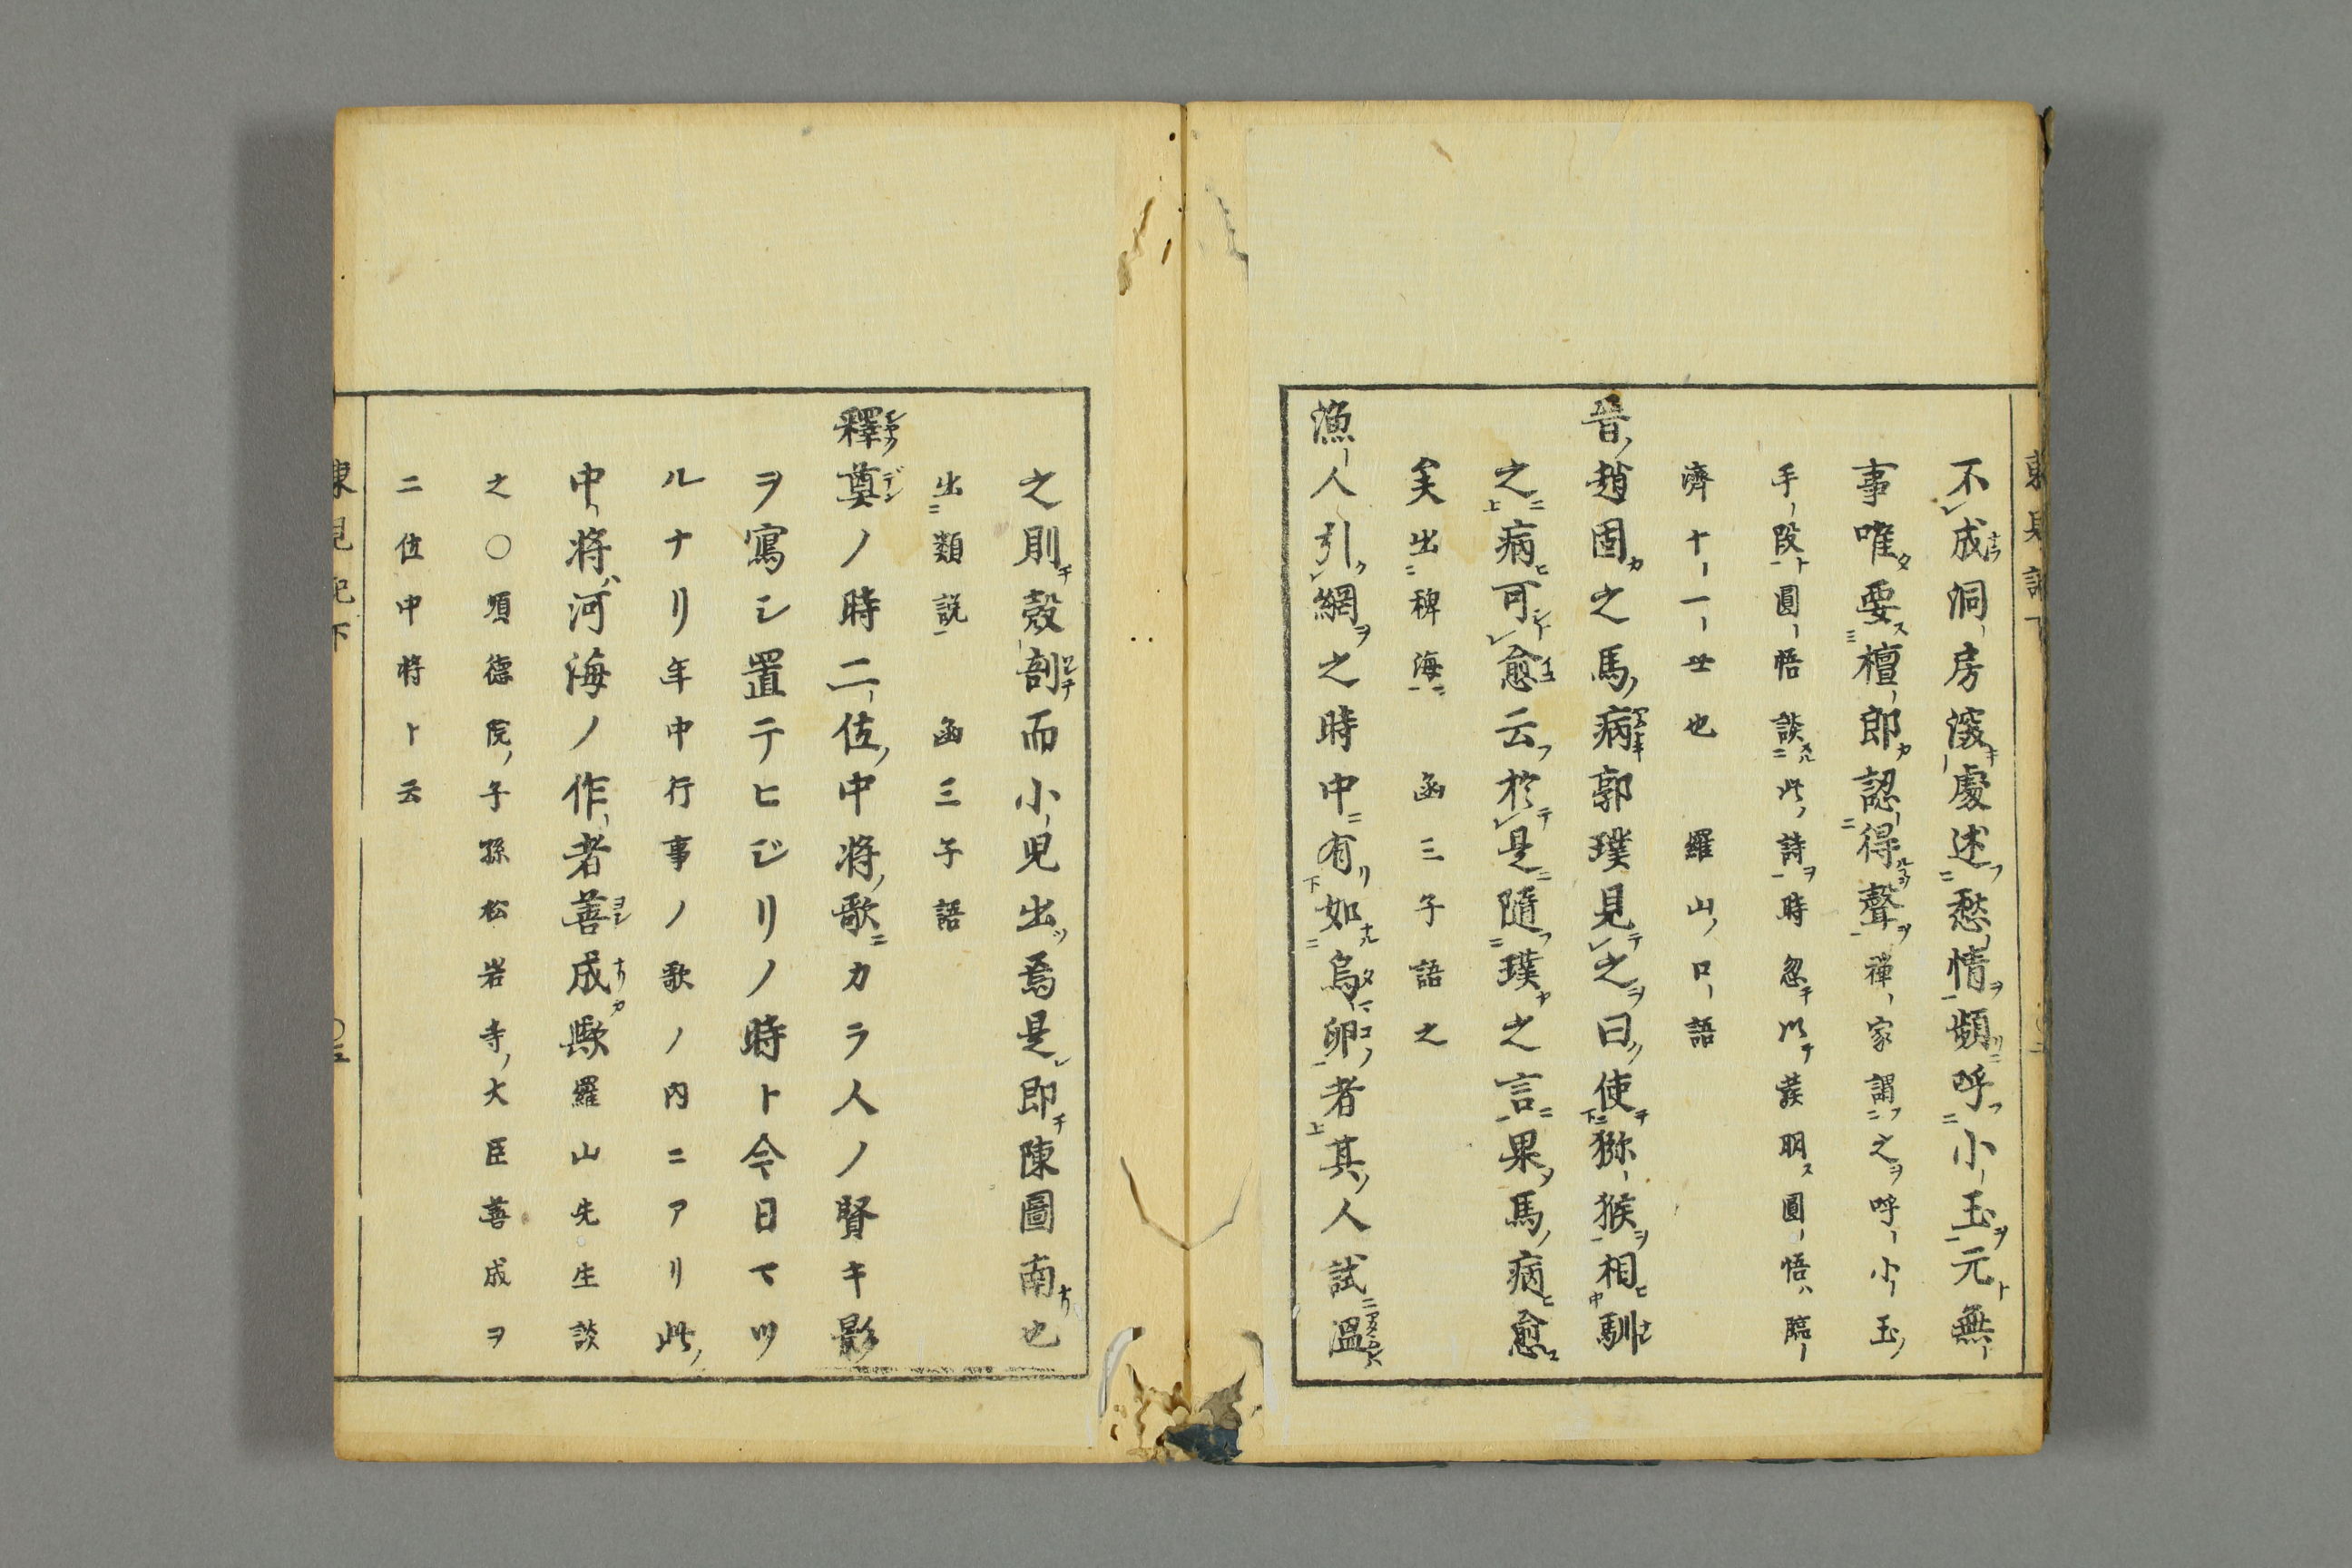 不成洞房深處述愁情頻呼小玉元無
事唯要檀郎認得聲禅家謂之呼小玉
手段圓悟談此詩時忽以發明ス圓悟ハ臨
濟十一世也 羅山ノ口語
昔趙固之馬病郭璞見之曰使猕猴相馴
之病可愈云於是隨璞之言果馬病愈
矣出稗海 函三子語之
漁人引網之時中有如烏卵者其人試温
之則殻剖而小児出焉是即陳圖南也
出類説 函三子語
釋奠ノ時二位中将歌ニカラ人ノ賢キ影
ヲ寫シ置テヒジリノ時ト今日マツ
ルナリ年中行事ノ歌ノ内ニアリ此ノ
中将ハ河海ノ作者善成歟羅山先生談
之○順德院ノ子孫松岩寺ノ大臣善成ヲ
二位中将ト云
東見記下